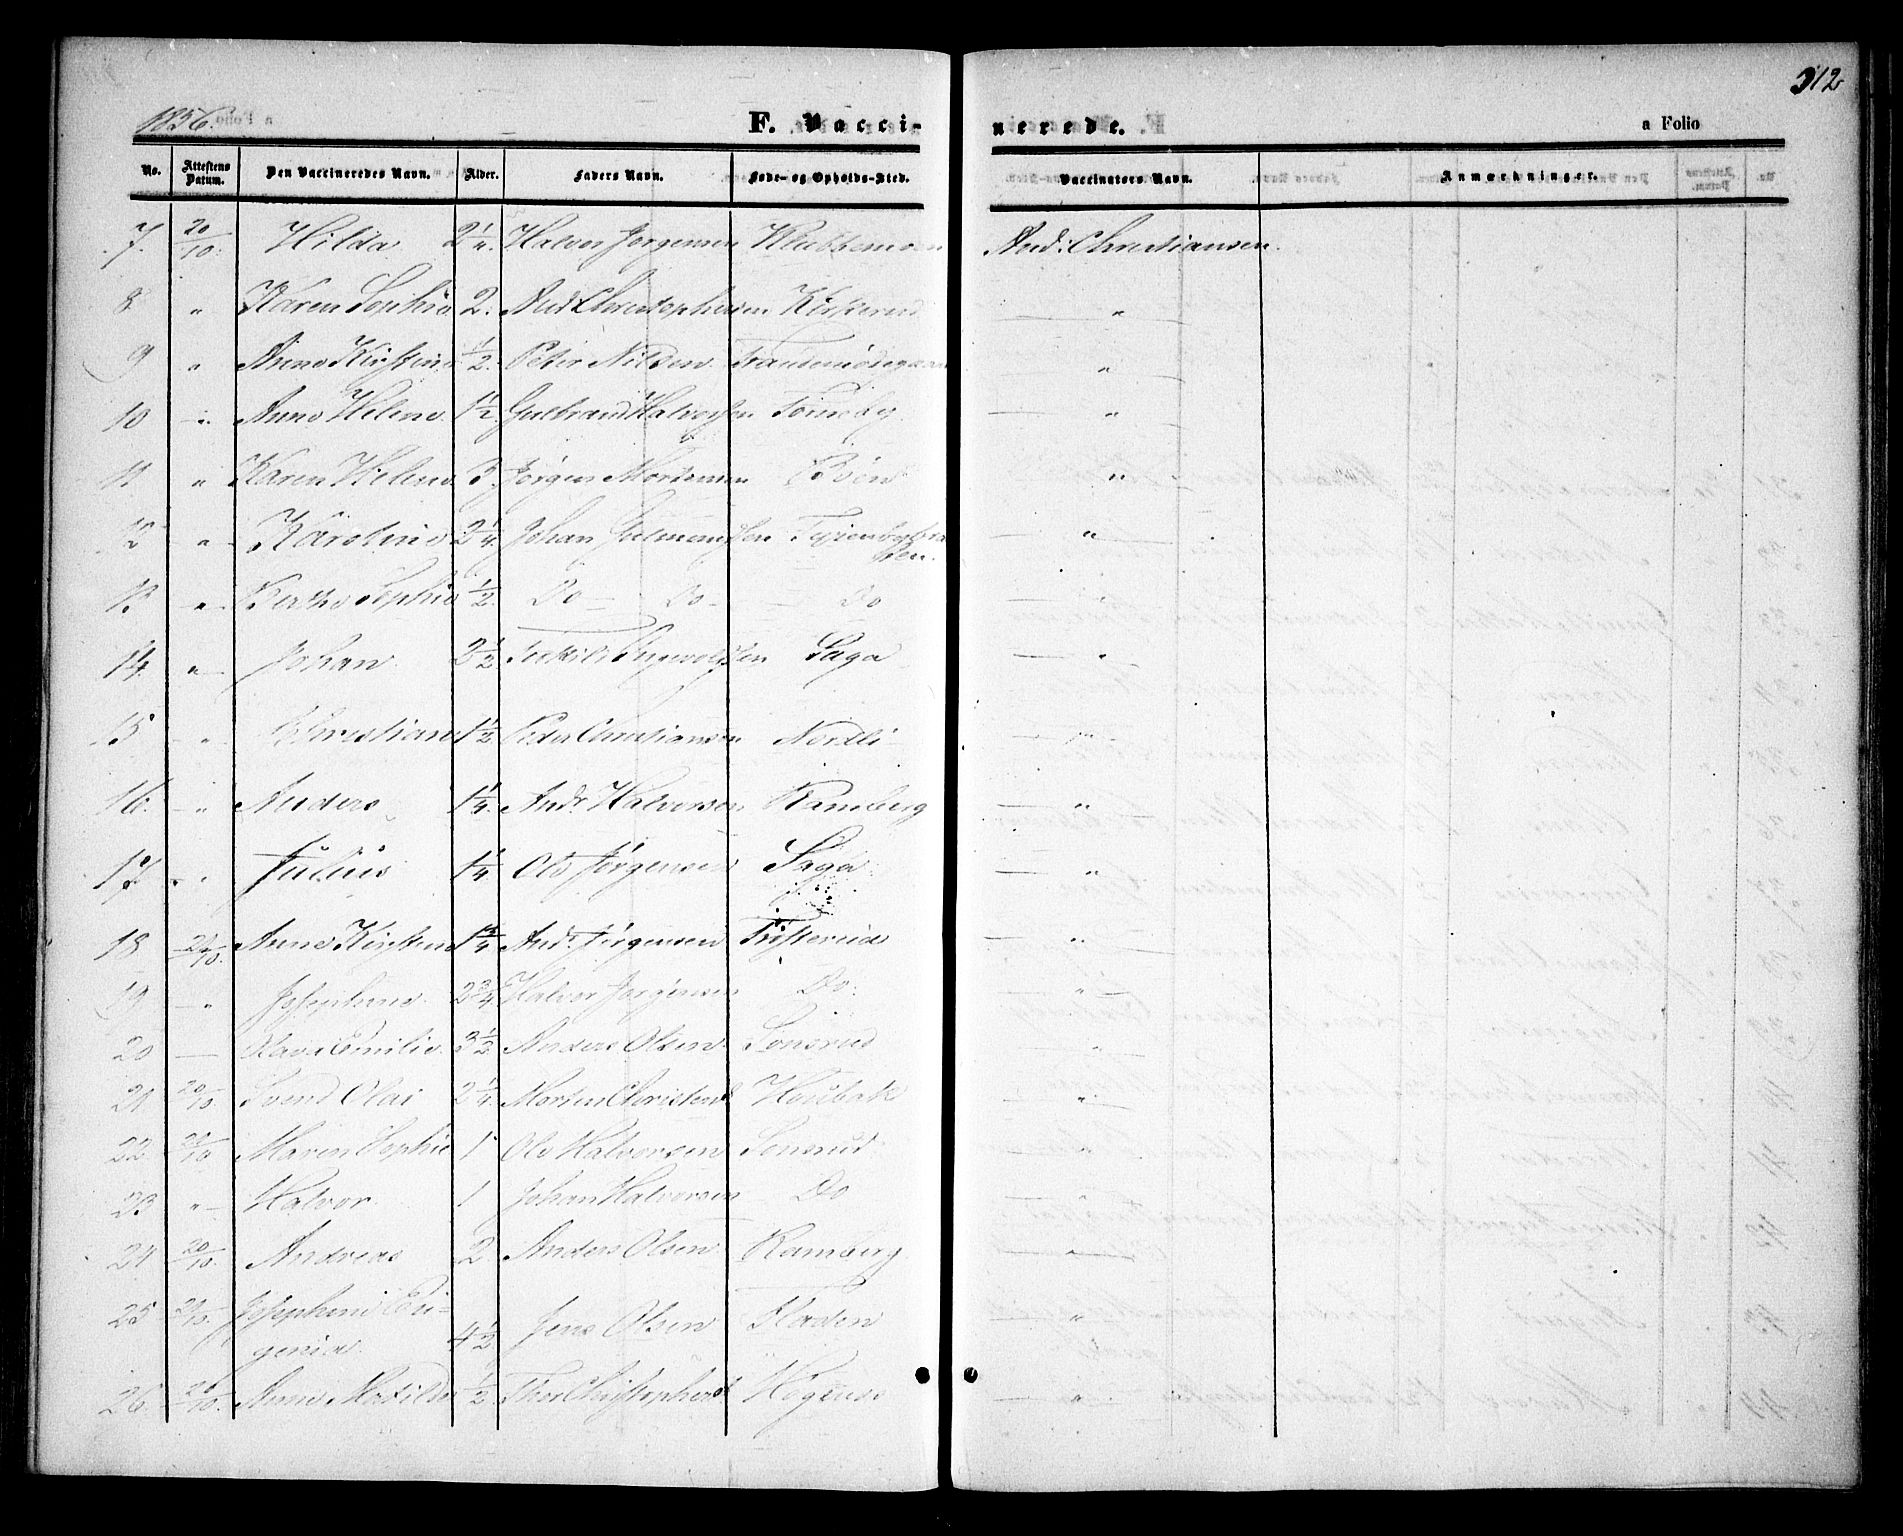 312
1856.
F. Vacci-
nerede.
a Folio
No.
Attestens Datum.
Den Vaccineredes Navn.
Alder.
Faders Navn.
Føde- og Opholds-Sted.
Vaccinators Navn.
Anmærkninger.
7. 20/10. Hilda 2 1/4. Halvor Jørgensen And: Christiansen.
8 " Karen Sophie 2. And: Christophersen Kirkerud "
9 " Anne Kirstine 1/2. Peter Nilsen "
10 " Anne Helene. 1 1/2. Gulbrand Halvorsen Tørresby. "
11 " Karen Helene. 3. Jørgen Mortensen Bøen "
12 " Karoline 2 1/4. Johan "
13. " Berthe Sophie 1/2. Do — Do — Do "
14 " Johan. 2 1/2 Saga "
15 " Christiane 1 1/2 Peder Christiansen Nordli "
16. " Anders 1 1/4. Andr. Halvorsen Ramberg "
17. " Julius 1 1/4. Ole Jørgensen Saga "
18 21/10. Anne Kirstine 1 3/4 Andr. Jørgensen "
19 " Josephine. 2 3/4 Halvor Jørgensen Do. "
20 — Olava Emilie. 3 1/2 Anders Olsen Sonsrud "
21 20/10. Svend Olai 2 1/4. Morten Christens "
22 20/10 Maren Sophie 1 Ole Halvorsen Sonsrud "
23 " Halvor. 1 Johan Halvorsen Do "
24 20/10. Andreas 2. Anders Olsen Ramberg "
25 20/10. Josephine Eu-
genia. 4 1/2 Jens Olsen "
26. 20/10. Anne Matilde 1/2 Thor Christophers "